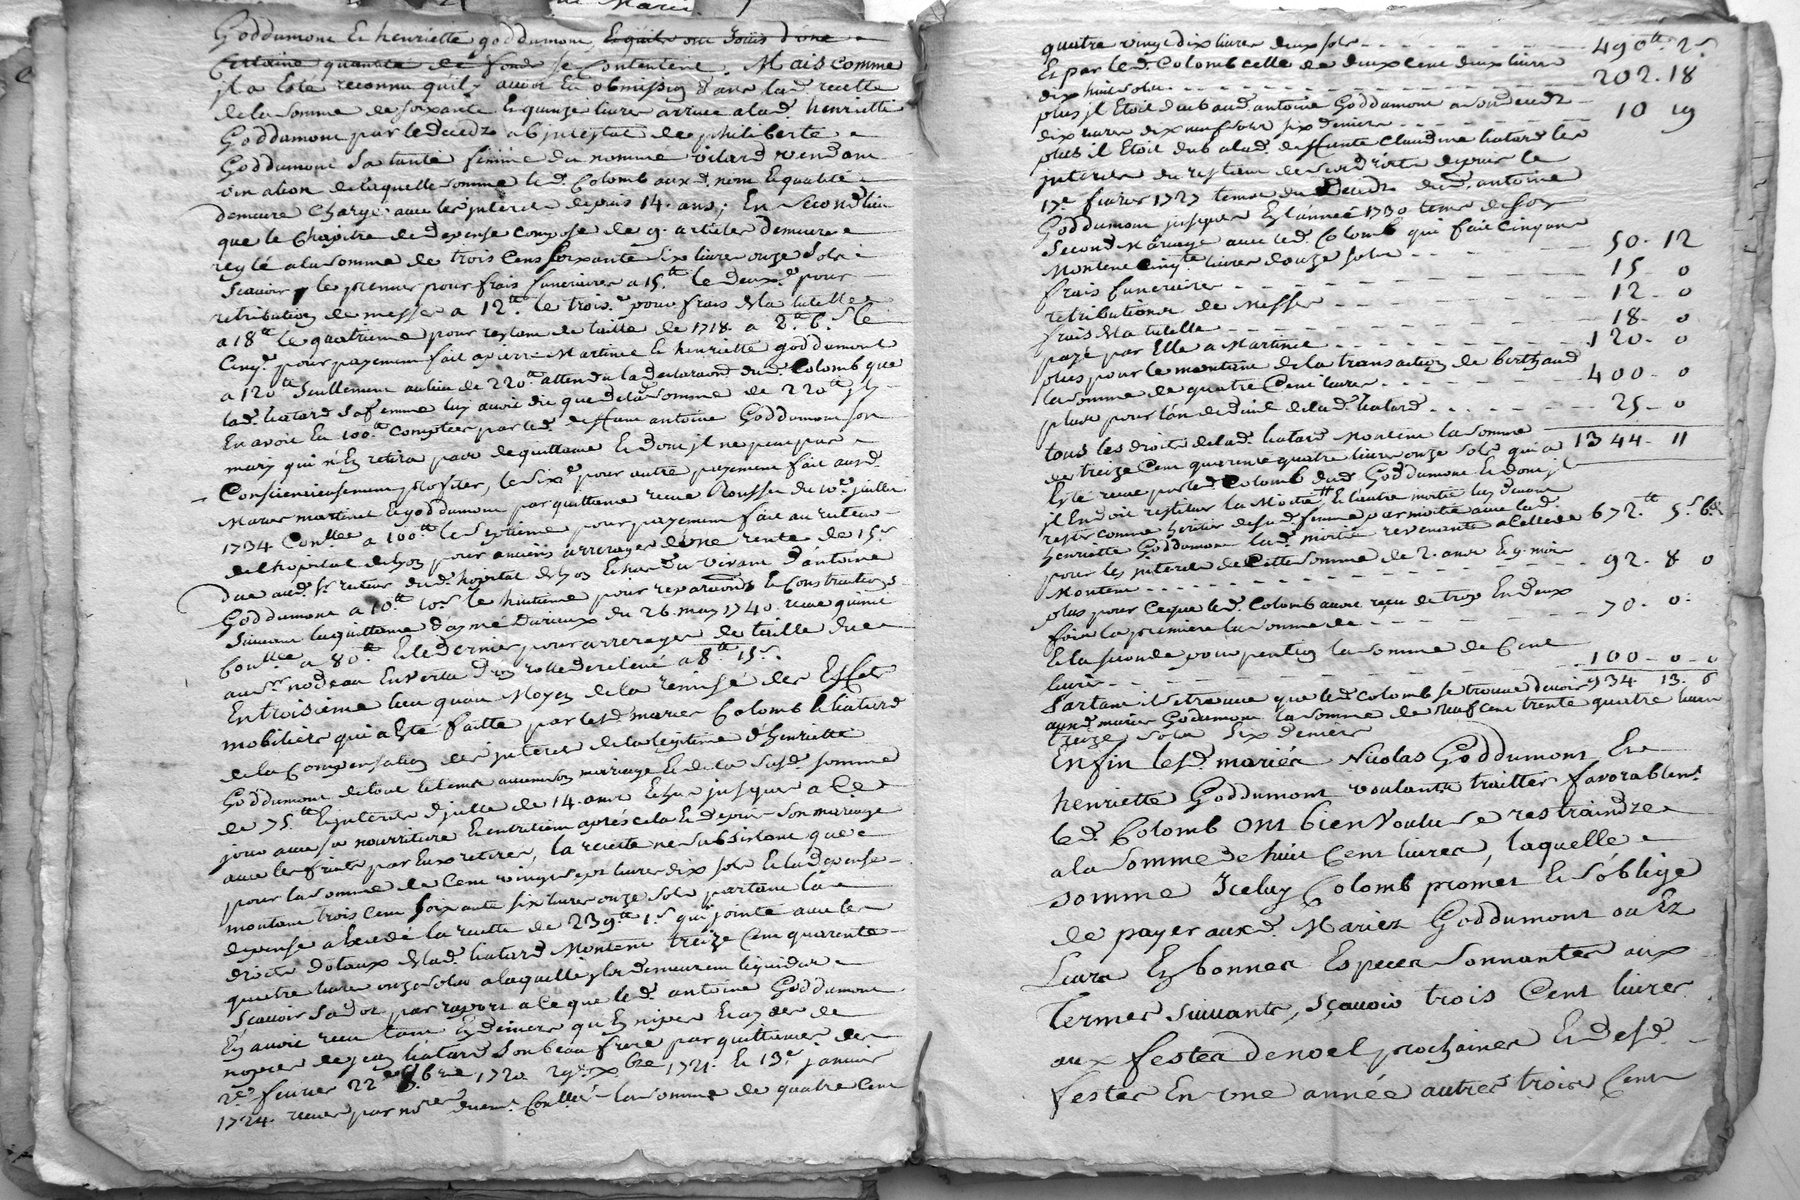 Goddumont Et henriette goddumont, Et quils ont Jouis d'une
Certaine quantité de fond se Contentent. Mais comme
jl a Esté reconnu quil y avoit Eu obmission dans lad. recette
de la somme de soixante Et quinze livres arrivée alad. henriette
Goddumont par le deceds abjntestat de philiberte
Goddumont Sa tante femme du nommé vilard
de laquelle somme led. Colomb auxd. nom Et qualité
demeure Chargé avec les jnterets depuis 14. ans; En second lieu
que le Chapitre de depense composé de 9. articles demeure
reglé a la somme de trois Cens soixante six livres onze sols
Scavoir, le premier pour frais funeraires a 15.tt le deux.e pour
retribution de messes a 12.tt le trois.e pour frais de la tutelle
a 18.tt le quatrieme pour restant de taille de 1718. a 2.tt 6.s le
Cinq.e pour payement fait a pierre Martinet Et henriette goddumont
a 120.tt Seullement au lieu de 220.tt attendu la declaration dud. Colomb que
lad. liatard sa femme luy avoit dit que de la somme de 220.tt
En avoit Eu 100.tt Comptées par led. deffunt antoine Goddumont son
mary qui n'En retira pas de quittance Et dont jl ne peut pas
Consciencieusement profiter, le six.e pour autre payement fait ausd.
Mariés martinet Et goddumont par quittance recue Rousset du 10.e juillet
1734. Con.llée a 100.tt le septieme pour payement fait au recteur
de l'hopital de lyon pour anciens arrerages d'une rente de 15.s
due aud. s.r recteur dud. hopital de lyon Echus du vivant d'antoine
Goddumont a 10.tt 10.s le huitieme pour reparations Et Constructions
Suivant la quittance d'aymé Durieux du 26. may 1740. recue
Con.llée a 80.tt Et le dernier pour arrerages de taille due
au s.r nodeau En vertu d'un rolle de relevé a 8.tt 15.s
En troisieme lieu quau Moyen de la remise des Effets
mobiliers qui a Esté faitte par lesd. mariés Colomb Et liatard
de la Compensation des jnterets de la legitime d'henriette
Goddumont de tout le tems avant son mariage Et de la susd. somme
de 75.tt Et jnterets d'jcelle de 14. ans Echus jusques a ce
jour avec sa nourriture Et entretien apres cela Et depuis son mariage
avec les fruits par Eux retirés, la recette ne subsistant que
pour la somme de Cent vingt sept livres dix sols Et la depense
montant trois Cent soixante six livres onze sols partant la
depense a Excedé la recette de 239.tt 1.s qui jointe avec les
droits dotaux de lad. liatard Montent treize Cent quarente
quatre livres onze sols a laquelle jls demeurent liquidés
Scavoir sa dot par raport a ce que led. antoine Goddumont
En avoit receu tant En deniers qu'En
de jean liatard son beau frere par quittances des
2.e fevrier 22.e 1720. 29.e Xbre 1721. Et 13.e janvier
1724. recues par Con.llées la somme de quatre Cent
quatre vingt dix livres deux sols 490.tt 2.s
Et par led. Colomb celle de deux cent deux livres
dix huit sols 202. 18
plus jl Etoit dub aud. antoine Goddumont a son deceds
dix livres dix neuf sols six deniers 10 19
plus il Etoit dub alad. deffunte Claudine liatard les
jnterets du restant de ses droits depuis le
17.e fevrier 1727 tems du Deceds dud. antoine
Goddumont jusques En l'année 1730 tems de son
Second Mariage avec led. Colomb qui fait Cinquante
Montent Cinq.te livres douze sols 50. 12
frais funeraires 15. 0
retributions de messes 12. 0
frais de la tutelle 18. 0
payé par Elle a Martinet 120. 0
plus pour le montant de la transaction de berthaud
la somme de quatre Cent livres 400. 0
plus pour l'an de dueil de lad. liatard 25. 0
tous les droits de lad. liatard Montent la somme
de treize Cent quarente quatre livres onze sols qui a 1344. 11
Esté receue par led. Colomb dud. Goddumont Et dont jl
jl En doit restituer la Moitié Et l'autre moitié luy devant
rester comme heritier de sad. femme par moitié avec lad.
henriette Goddumont lad. moitié revenante a celle de 672.tt 5.s 6.d
pour les jnterets de Cette Somme de 2. ans Et 9. mois
Montent 92. 8 0
plus pour Ce que led. Colomb avoit receu de trop En deux
fois la premiere la somme de 70. 0.
Et la seconde pour pention la somme de Cent
livres 100 0 0
Partant il se trouve que led. Colomb se trouve devoir 934. 13. 6
auxd. mariés Goddumont la somme de neuf cent trente quatre livres
treize sols six deniers
Enfin lesd. mariés Nicolas Goddumont Et
henriette Goddumont voulants traitter favorablem.t
led. Colomb ont bien voulu se restraindre
a la Somme de huit Cent livres, laquelle
somme Jceluy Colomb promet Et s'oblige
de payer auxd. Mariez Goddumont ou Ez
Leurs En bonnes Especes Sonnantes aux
Termes suivants, Sçavoir trois Cent livres
aux festes de noel prochaines Et desd.
festes En une année autres trois Cent